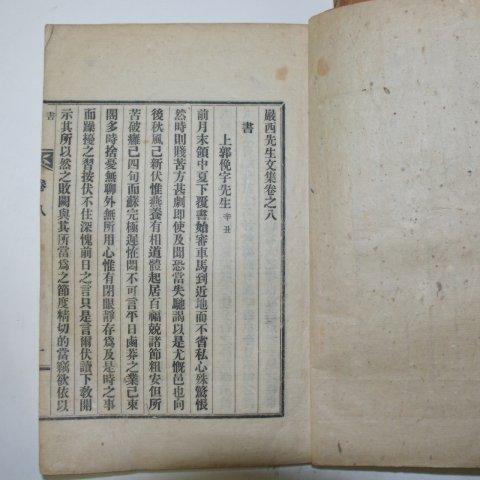 巖西先生文集卷之八
書
上郭俛宇先生 辛丑
前月末領中夏下覆書始審車馬到近地而不省私心殊驚悵
然時則賤苦方甚劇即使及聞恐當失馳謁以是尤慨邑也向
後秋風已新伏惟燕養有相道體起居百福兢諸節粗安但所
苦破癰已四旬而蘇完極遲悶不可言平日鹵莽之業已束
閣多時捨憂無聊外無所用心惟有閉眼靜存爲及是時之事
而躁擾之習按伏不住深愧前日之言只是言爾伏讀下教開
示其所以然之敗闕與其所當爲之節度精切的當竊欲依以
書
卷八
一